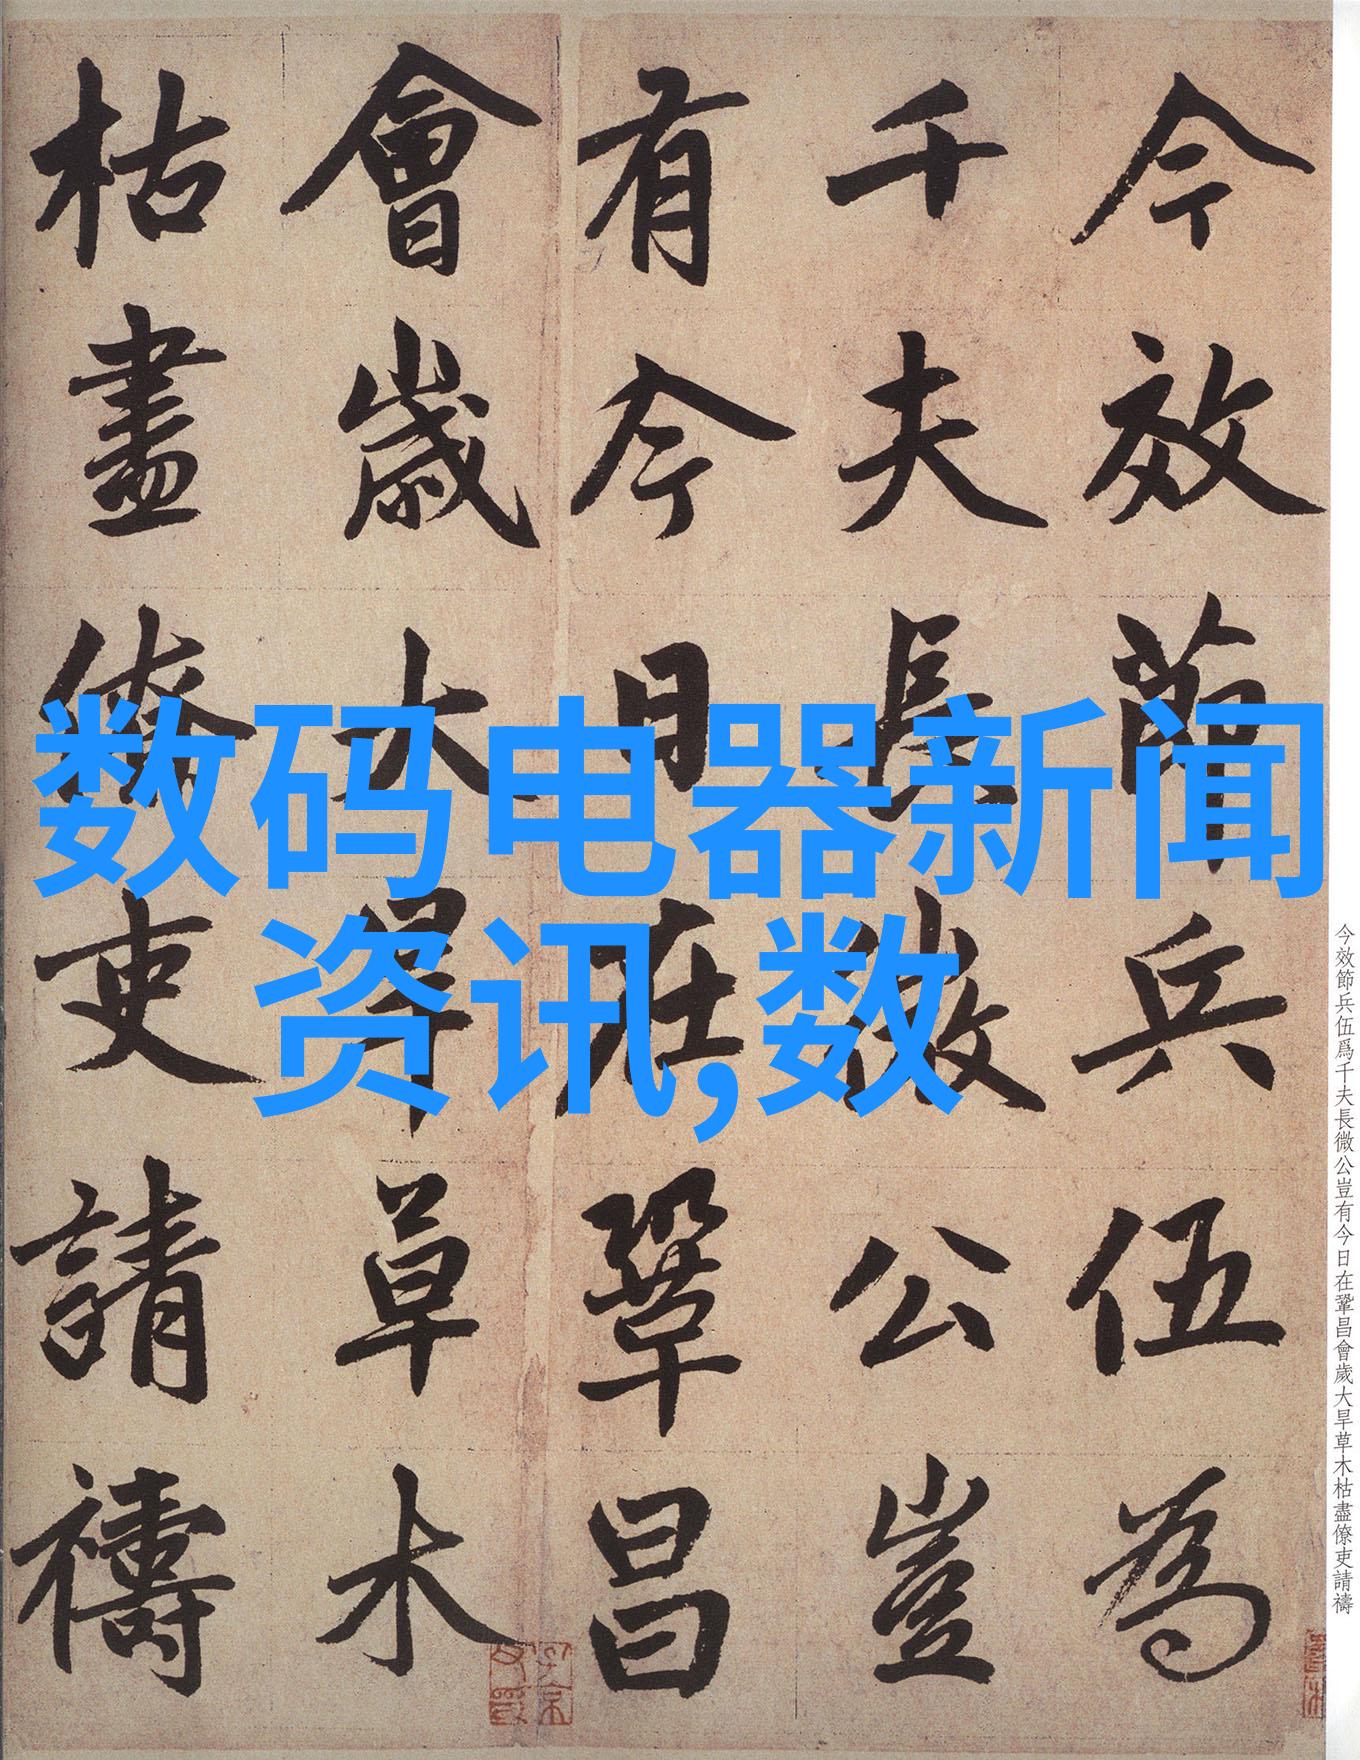 今效節兵伍為
千夫長微公豈
有今日在鞏昌
會歲大旱草木
枯盡僚吏請禱
数码电器新闻
资讯,数
今效節兵伍爲千夫長微公豈有今日在鞏昌會歲大旱草木枯盡僚吏請禱